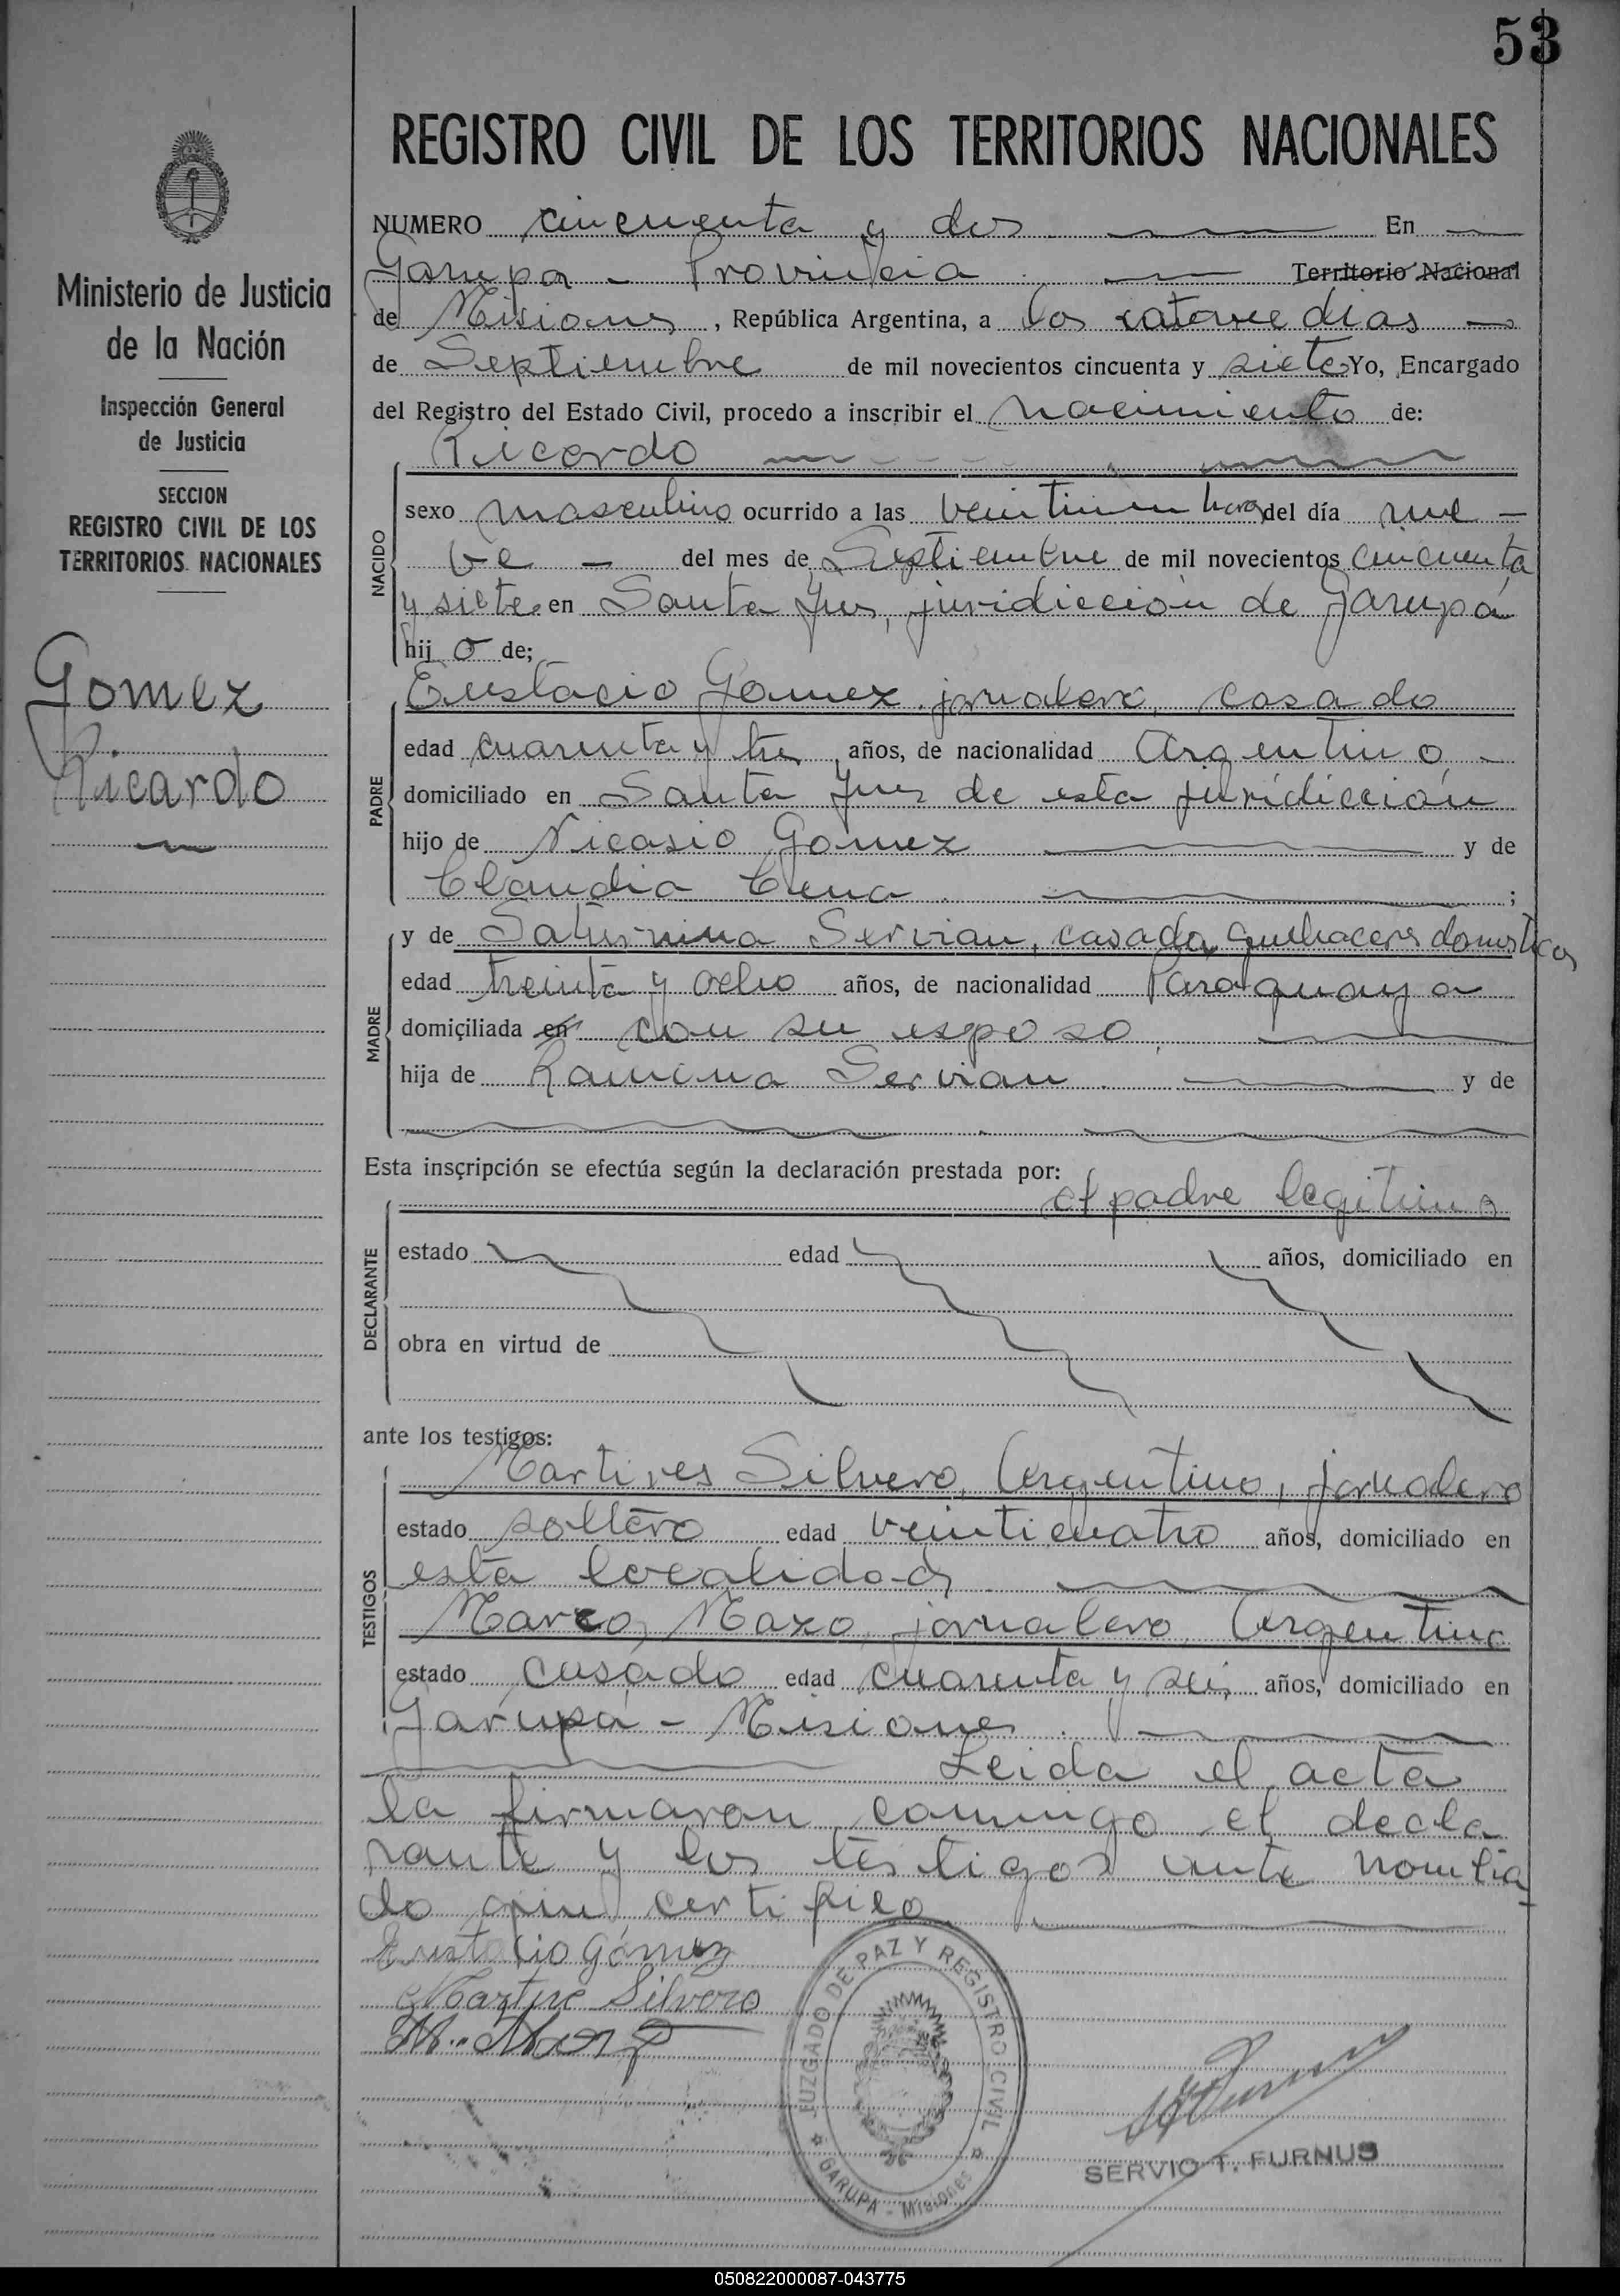 53
REGISTRO CIVIL DE LOS TERRITORIOS NACIONALES
Ministerio de Justicia
de la Nación
Inspección General
de Justicia
SECCION
REGISTRO CIVIL DE LOS
TERRITORIOS NACIONALES
Gomez
Ricardo
NUMERO cincuenta y dos En
Garupa - Provincia Territorio Nacional
de Misiones, República Argentina, a los catorce dias
de Septiembre de mil novecientos cincuenta y siete Yo, Encargado
del Registro del Estado Civil, procedo a inscribir el nacimiento de:
Ricardo
NACIDO
sexo masculino ocurrido a las horas del día nue-
ve - del mes de Septiembre de mil novecientos cincuenta
y siete en Santa Ines, juridiccion de Garupá
hijo de;
Eustacio Gomez jornalero, casado
PADRE
edad cuarenta y tres años, de nacionalidad Argentino -
domiciliado en Santa Ines de esta juridiccion
hijo de Nicasio Gomez y de
Claudia Cena ;
y de Saturnina Servian, casada, quehaceres domesticos
MADRE
edad treinta y ocho años, de nacionalidad Paraguaya
domiciliada en con su esposo
hija de Ramona Servian y de
Esta inscripción se efectúa según la declaración prestada por:
el padre legitimo
DECLARANTE
estado edad años, domiciliado en
obra en virtud de
ante los testigos:
Martires Silvero, Argentino, jornalero
TESTIGOS
estado soltero edad veinticuatro años, domiciliado en
esta localidad
Marco Mazo, jornalero, Argentino
estado casado edad cuarenta y seis años, domiciliado en
Garupá - Misiones
Leida el acta
la firmaron conmigo el decla
rante y los testigos ante nombra
do que certifico
Eustacio Gómez
Martire Silvero
JUZGADO DE PAZ Y REGISTRO CIVIL
GARUPA - Misiones
SERVIO T. FURNUS
050822000087-043775